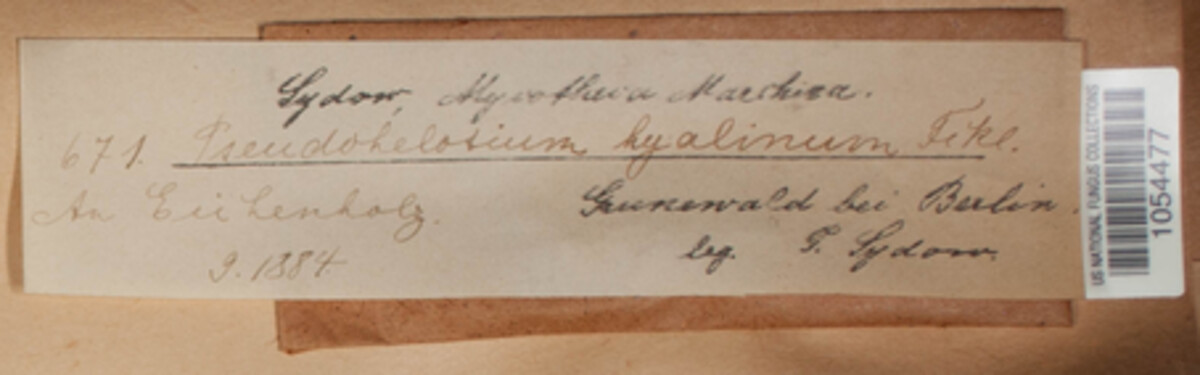 Sydow, Mycotheca Marchica.
671. Pseudohelotium hyalinum Fckl.
An Eichenholz. Grunewald bei Berlin.
9. 1884. leg. P. Sydow.
US NATIONAL FUNGUS COLLECTIONS
1054477